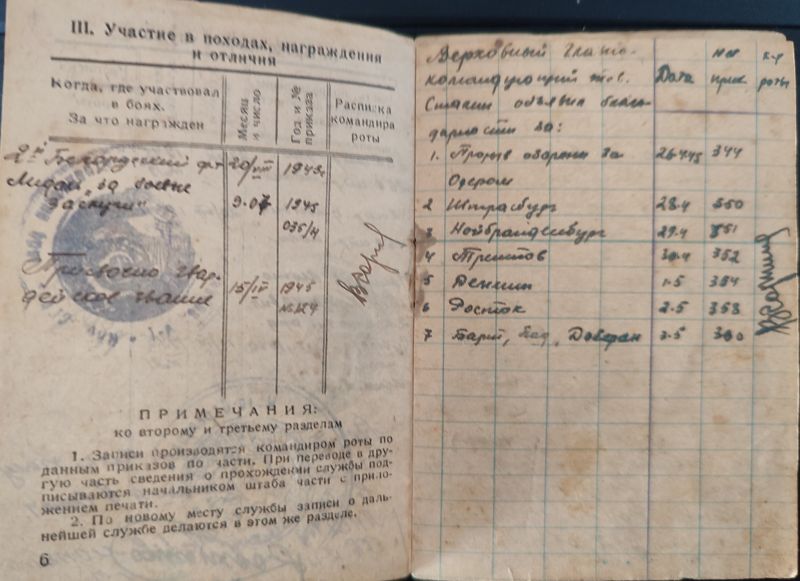 III. Участие в походах, награждения
и отличия
Когда, где участвовал
в боях.
За что награжден
Месяц
и число
Год и №
приказа
Расписка
командира
роты
2й Белорусский фт 20/VIII 1943г.
Медаль „за боевые 9.07 1945
заслуги" 035/н
Присвоено гвар- 15/IV 1945
дейское звание № 124
ПРИМЕЧАНИЯ:
ко второму и третьему разделам
1. Записи производятся командиром роты по
данным приказов по части. При переводе в дру-
гую часть сведения о прохождении службы под-
писываются начальником штаба части с прило-
жением печати.
2. По новому месту службы записи о даль-
нейшей службе делаются в этом же разделе.
6
Верховный Главно-
командующий тов. Дата прик. роты
Сталин объявил благо-
дарности за:
1. Прорыв обороны за 26.4.45 344
Одером
2 Штрасбург 28.4 350
3 Нойбранденбург 29.4 351
4 Трептов 30.4 352
5 Деммин 1.5 354
6 Росток 2.5 358
7 Барт, Бад, Доберан 3.5 360